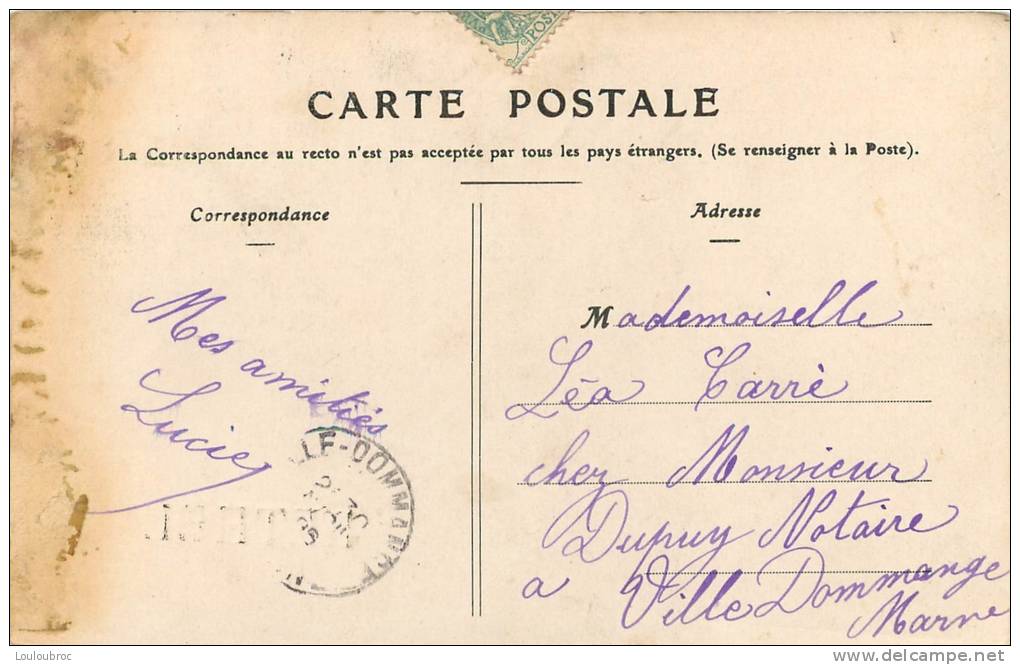 POSTE
CARTE POSTALE
La Correspondance au recto n'est pas acceptée par tous les pays étrangers. (Se renseigner à la Poste).
Correspondance
Adresse
Mes amitiés
Lucie
Mademoiselle
Léa Carré
chez Monsieur
Dupuy Notaire
a Ville Dommange
Marne
LLE-DOMMANGE
Louloubroc
www.delcampe.net